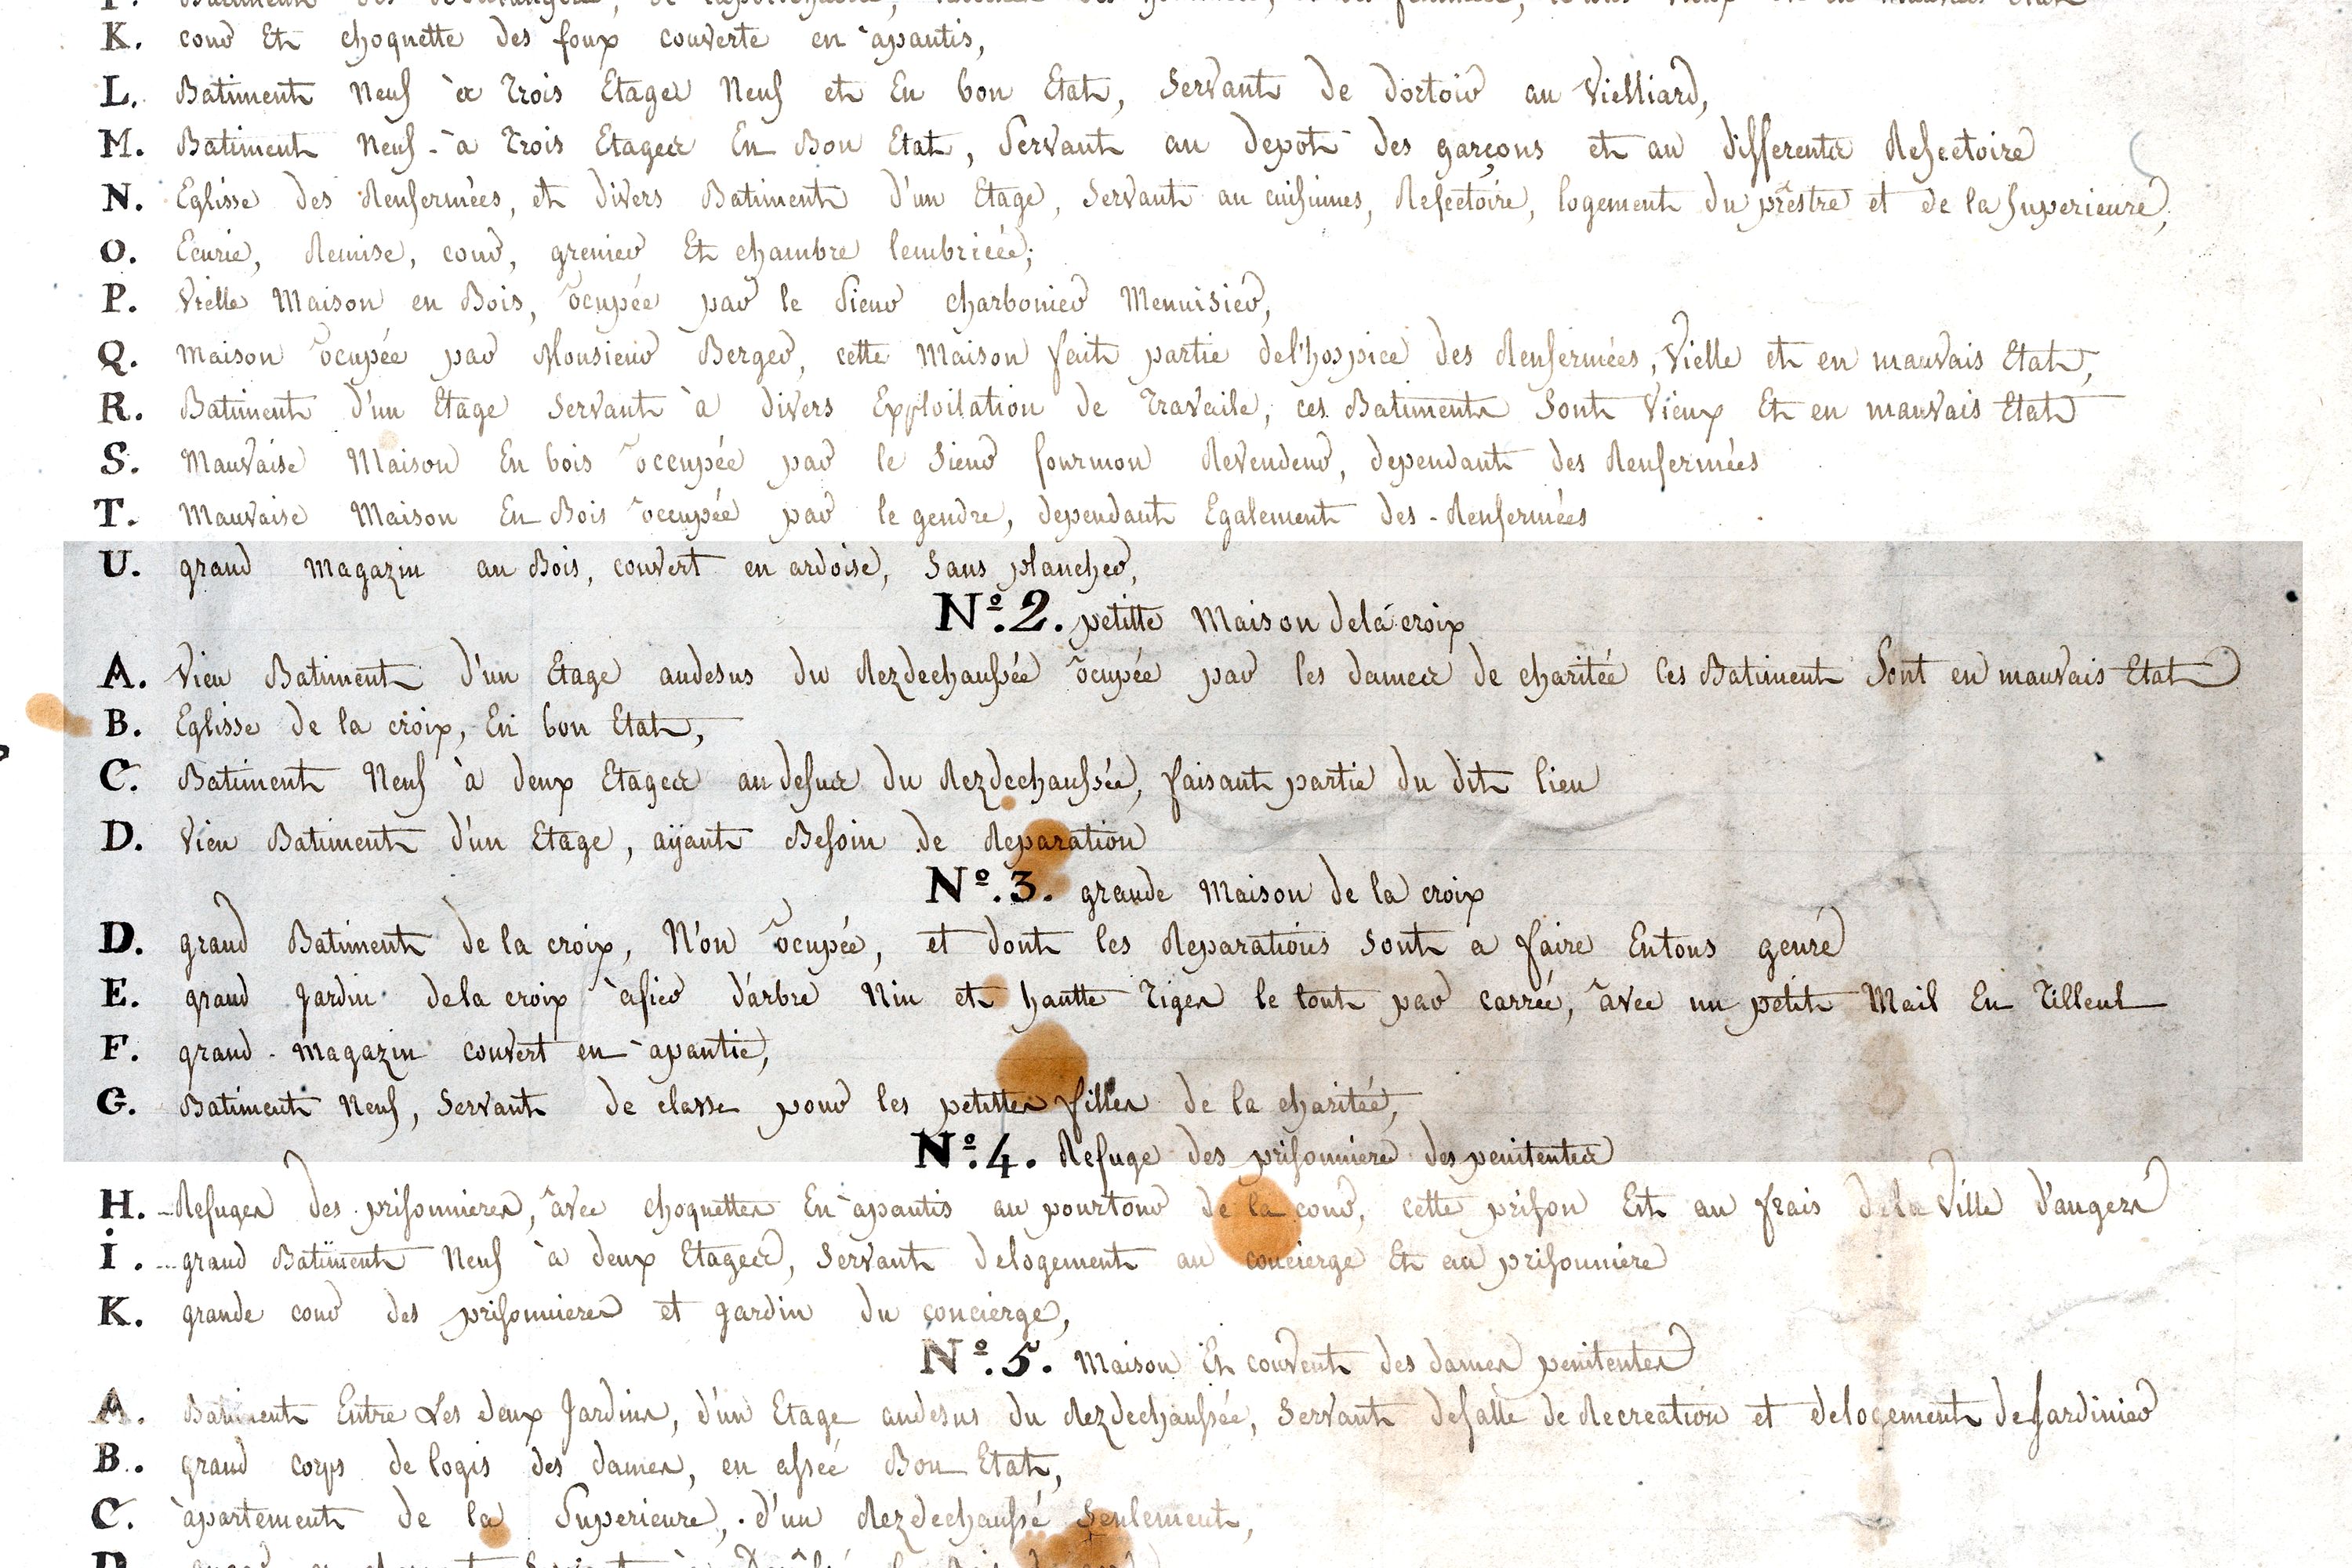 K. cour Et choquette des foux couverte en apantis,
L. Batiment Neuf à Trois Etages Neuf et En bon Etat, Servant de dortoir au Vielliard,
M. Batiment Neuf à Trois Etages En Bon Etat, Servant au depot des garçons et au differents Refectoire
N. Eglisse des Renfermées, et divers Batiment d'un Etage, Servant au cuisinnes, Refectoire, logement du prêstre et de la Superieure,
O. Ecurie, Remise, cour, grenier Et chambre lembricée;
P. Vielle Maison en Bois, ocupée par le Sieur charbonier Menuisier,
Q. Maison ocupée par Monsieur Berger, cette Maison fait partie del'hospice des Renfermées, Vielle et en mauvais Etat,
R. Batiment d'un Etage Servant à divers Exploitation de Travaile, ces Batiments Sont Vieux Et en mauvais Etat
S. Mauvaise Maison En bois occupée par le Sieur fourmon Revendeur, dependant des Renfermées
T. Mauvaise Maison En Bois occupée par le gendre, dependant Egalement des Renfermées
U. grand Magazin au Bois, couvert en ardoise, Sans plancher,
Nº. 2. petitte Maison dela croix
A. Vieu Batiment d'un Etage audesus du Rezdechaussée ocupée par les dames de charitée Ces Batiment Sont en mauvais Etat
B. Eglisse de la croix, En bon Etat,
C. Batiment Neuf à deux Etages au desus du Rezdechaussée, faisant partie du dit lieu
D. Vieu Batiment d'un Etage, aÿant Besoin de Reparation
Nº. 3. grande Maison de la croix
D. grand Batiment de la croix, N'on ocupée, et dont les Reparations Sont a faire Entous genre
E. grand jardin dela croix àfier d'arbre Nin et hautte Tiges le tout par carrée, avec un petit Mail En Tilleul
F. grand magazin couvert en apantie,
G. Batiment Neuf, Servant de classe pour les petittes filles de la charitée,
Nº. 4. Refuge des prisonniere des penitentes
H. Refuges des prisonnieres, avec choquettes En apantis au pourtour de la cour, cette prison Est au frais dela Ville d'angers
i. grand Batiment Neuf à deux Etages, Servant delogement au concierge Et au prisonniere
K. grande cour des prisonnieres et jardin du concierge,
Nº. 5. Maison Et couvent des dames penitentes
A. Batiment Entre Les deux Jardins, d'un Etage audesus du Rezdechaussée, Servant desalle de Recreation et delogement deJardinier
B. grand corps de logis des dames, en assée Bon Etat,
C. àpartement de la Superieure, d'un Rezdechaussé Seulement,